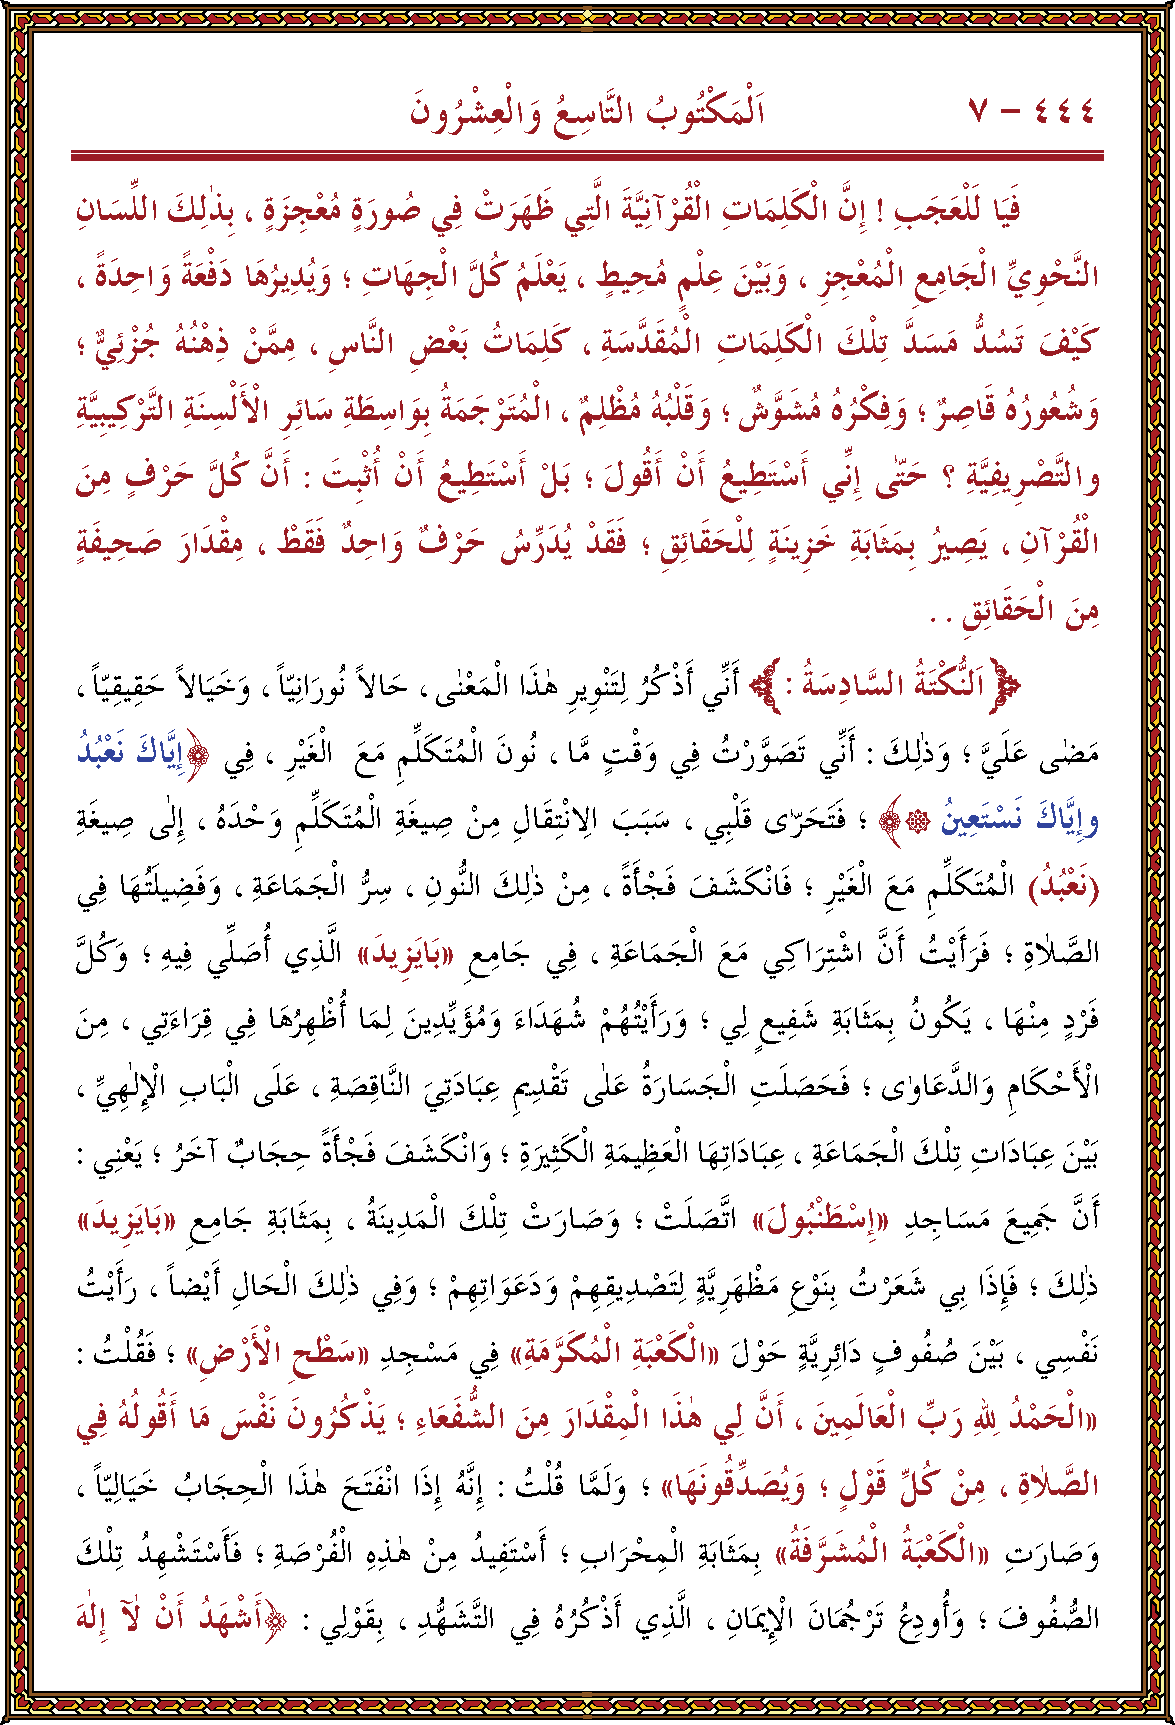 ٤٤٤ – ٧ اَلْمَكْتُوبُ التَّاسِعُ وَالْعِشْرُونَ
فَيَا لَلْعَجَبِ ! إِنَّ الْكَلِمَاتِ الْقُرْآنِيَّةَ الَّتِي ظَهَرَتْ فِي صُورَةِ مُعْجِزَةٍ ، بِذٰلِكَ اللِّسَانِ
النَّحْوِيِّ الْجَامِعِ الْمُعْجِزِ ، وَبَيْنَ عِلْمٍ مُحِيطٍ ، يَعْلَمُ كُلَّ الْجِهَاتِ ؛ وَيُدِيرُهَا دَفْعَةً وَاحِدَةً ،
كَيْفَ تَسُدُّ مَسَدَّ تِلْكَ الْكَلِمَاتِ الْمُقَدَّسَةِ ، كَلِمَاتُ بَعْضِ النَّاسِ ، مِمَّنْ ذِهْنُهُ جُزْئِيٌّ ؛
وَشُعُورُهُ قَاصِرٌ ؛ وَفِكْرُهُ مُشَوَّشٌ ؛ وَقَلْبُهُ مُظْلِمٌ ، الْمُتَرْجَمَةُ بِوَاسِطَةِ سَائِرِ الْأَلْسِنَةِ التَّرْكِيبِيَّةِ
والتَّصْرِيفِيَّةِ ؟ حَتّٰى إِنِّي أَسْتَطِيعُ أَنْ أَقُولَ ؛ بَلْ أَسْتَطِيعُ أَنْ أُثْبِتَ : أَنَّ كُلَّ حَرْفٍ مِنَ
الْقُرْآنِ ، يَصِيرُ بِمَثَابَةِ خَزِينَةٍ لِلْحَقَائِقِ ؛ فَقَدْ يُدَرِّسُ حَرْفٌ وَاحِدٌ فَقَطْ ، مِقْدَارَ صَحِيفَةٍ
مِنَ الْحَقَائِقِ . .
اَلنُّكْتَةُ السَّادِسَةُ : أَنِّي أَذْكُرُ لِتَنْوِيرِ هٰذَا الْمَعْنٰى ، حَالاً نُورَانِيّاً ، وَخَيَالاً حَقِيقِيّاً ،
مَضٰى عَلَيَّ ؛ وَذٰلِكَ : أَنِّي تَصَوَّرْتُ فِي وَقْتٍ مَّا ، نُونَ الْمُتَكَلِّمِ مَعَ الْغَيْرِ ، فِي ﴿إِيَّاكَ نَعْبُدُ
وإِيَّاكَ نَسْتَعِينُ ۞﴾ ؛ فَتَحَرّٰى قَلْبِي ، سَبَبَ الِانْتِقَالِ مِنْ صِيغَةِ الْمُتَكَلِّمِ وَحْدَهُ ، إِلٰى صِيغَةِ
(نَعْبُدُ) الْمُتَكَلِّمِ مَعَ الْغَيْرِ ؛ فَانْكَشَفَ فَجْأَةً ، مِنْ ذٰلِكَ النُّونِ ، سِرُّ الْجَمَاعَةِ ، وَفَضِيلَتُهَا فِي
الصَّلَاةِ ؛ فَرَأَيْتُ أَنَّ اشْتِرَاكِي مَعَ الْجَمَاعَةِ ، فِي جَامِعِ «بَايَزِيدَ» الَّذِي أُصَلِّي فِيهِ ؛ وَكُلَّ
فَرْدٍ مِنْهَا ، يَكُونُ بِمَثَابَةِ شَفِيعٍ لِي ؛ وَرَأَيْتُهُمْ شُهَدَاءَ وَمُؤَيِّدِينَ لِمَا أُظْهِرُهَا فِي قِرَاءَتِي ، مِنَ
الْأَحْكَامِ وَالدَّعَاوٰى ؛ فَحَصَلَتِ الْجَسَارَةُ عَلٰى تَقْدِيمِ عِبَادَتِيَ النَّاقِصَةِ ، عَلَى الْبَابِ الْإِلٰهِيِّ ،
بَيْنَ عِبَادَاتِ تِلْكَ الْجَمَاعَةِ ، عِبَادَاتِهَا الْعَظِيمَةِ الْكَثِيرَةِ ؛ وَانْكَشَفَ فَجْأَةً حِجَابٌ آخَرُ ؛ يَعْنِي :
أَنَّ جَمِيعَ مَسَاجِدِ «إِسْطَنْبُولَ» اتَّصَلَتْ ؛ وَصَارَتْ تِلْكَ الْمَدِينَةُ ، بِمَثَابَةِ جَامِعِ «بَايَزِيدَ»
ذٰلِكَ ؛ فَإِذَا بِي شَعَرْتُ بِنَوْعِ مَظْهَرِيَّةٍ لِتَصْدِيقِهِمْ وَدَعَوَاتِهِمْ ؛ وَفِي ذٰلِكَ الْحَالِ أَيْضاً ، رَأَيْتُ
نَفْسِي ، بَيْنَ صُفُوفٍ دَائِرِيَّةٍ حَوْلَ «الْكَعْبَةِ الْمُكَرَّمَةِ» فِي مَسْجِدِ «سَطْحِ الْأَرْضِ» ؛ فَقُلْتُ :
«الْحَمْدُ لِلّٰهِ رَبِّ الْعَالَمِينَ ، أَنَّ لِي هٰذَا الْمِقْدَارَ مِنَ الشُّفَعَاءِ ؛ يَذْكُرُونَ نَفْسَ مَا أَقُولُهُ فِي
الصَّلٰاةِ ، مِنْ كُلِّ قَوْلٍ ؛ وَيُصَدِّقُونَهَا» ؛ وَلَمَّا قُلْتُ : إِنَّهُ إِذَا انْفَتَحَ هٰذَا الْحِجَابُ خَيَالِيّاً ،
وَصَارَتِ «الْكَعْبَةُ الْمُشَرَّفَةُ» بِمَثَابَةِ الْمِحْرَابِ ؛ أَسْتَفِيدُ مِنْ هٰذِهِ الْفُرْصَةِ ؛ فَأَسْتَشْهِدُ تِلْكَ
الصُّفُوفَ ؛ وَأُودِعُ تَرْجُمَانَ الْإِيمَانِ ، الَّذِي أَذْكُرُهُ فِي التَّشَهُّدِ ، بِقَوْلِي : ﴿أَشْهَدُ أَنْ لٰٓا إِلٰهَ